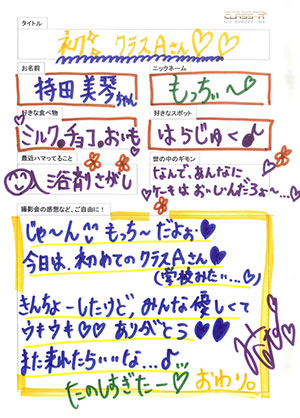 CLASS-A
タイトル
初☆ クラスAさん♡♡
お名前
ニックネーム
持田美琴ちゃん
もっちぃ〜
好きな食べ物
好きなスポット
ミルク。チョコ。おいも
はらじゅく♪
最近ハマってること
世の中のギモン
入浴剤さがし
なんで、あんなに
ケーキはおいしいんだろぉ〜...💭
撮影会の感想など、ご自由に!
じゃ〜ん もっち〜だよぉ♥
今日は、初めてのクラスAさん♥
(学校みたい...♡)
きんちょーしたけど、みんな優しくて
ウキウキ♡♡ ありがとう♥♥
また来れたらいいな...♪
たのしすぎたー♡ おわり。